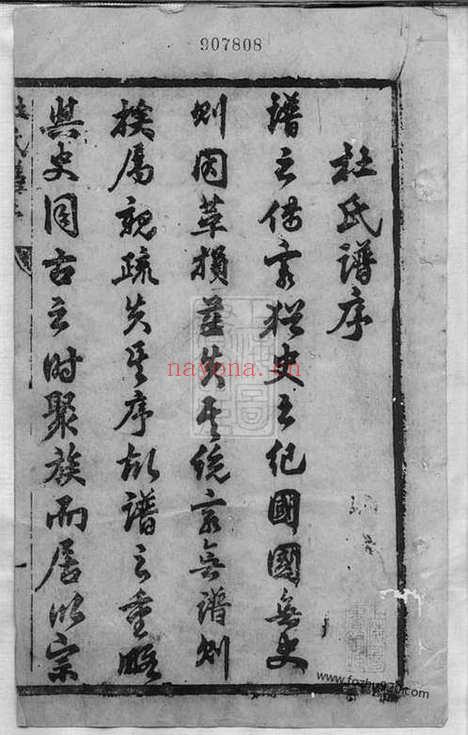 907808
杜氏譜序
譜之傳家猶史之紀國國無史
則因革損益失其統家無譜則
族屬親疏失其序故譜之重略
與史同古之時聚族而居以宗
nayona.cn
www.fozhu920.com